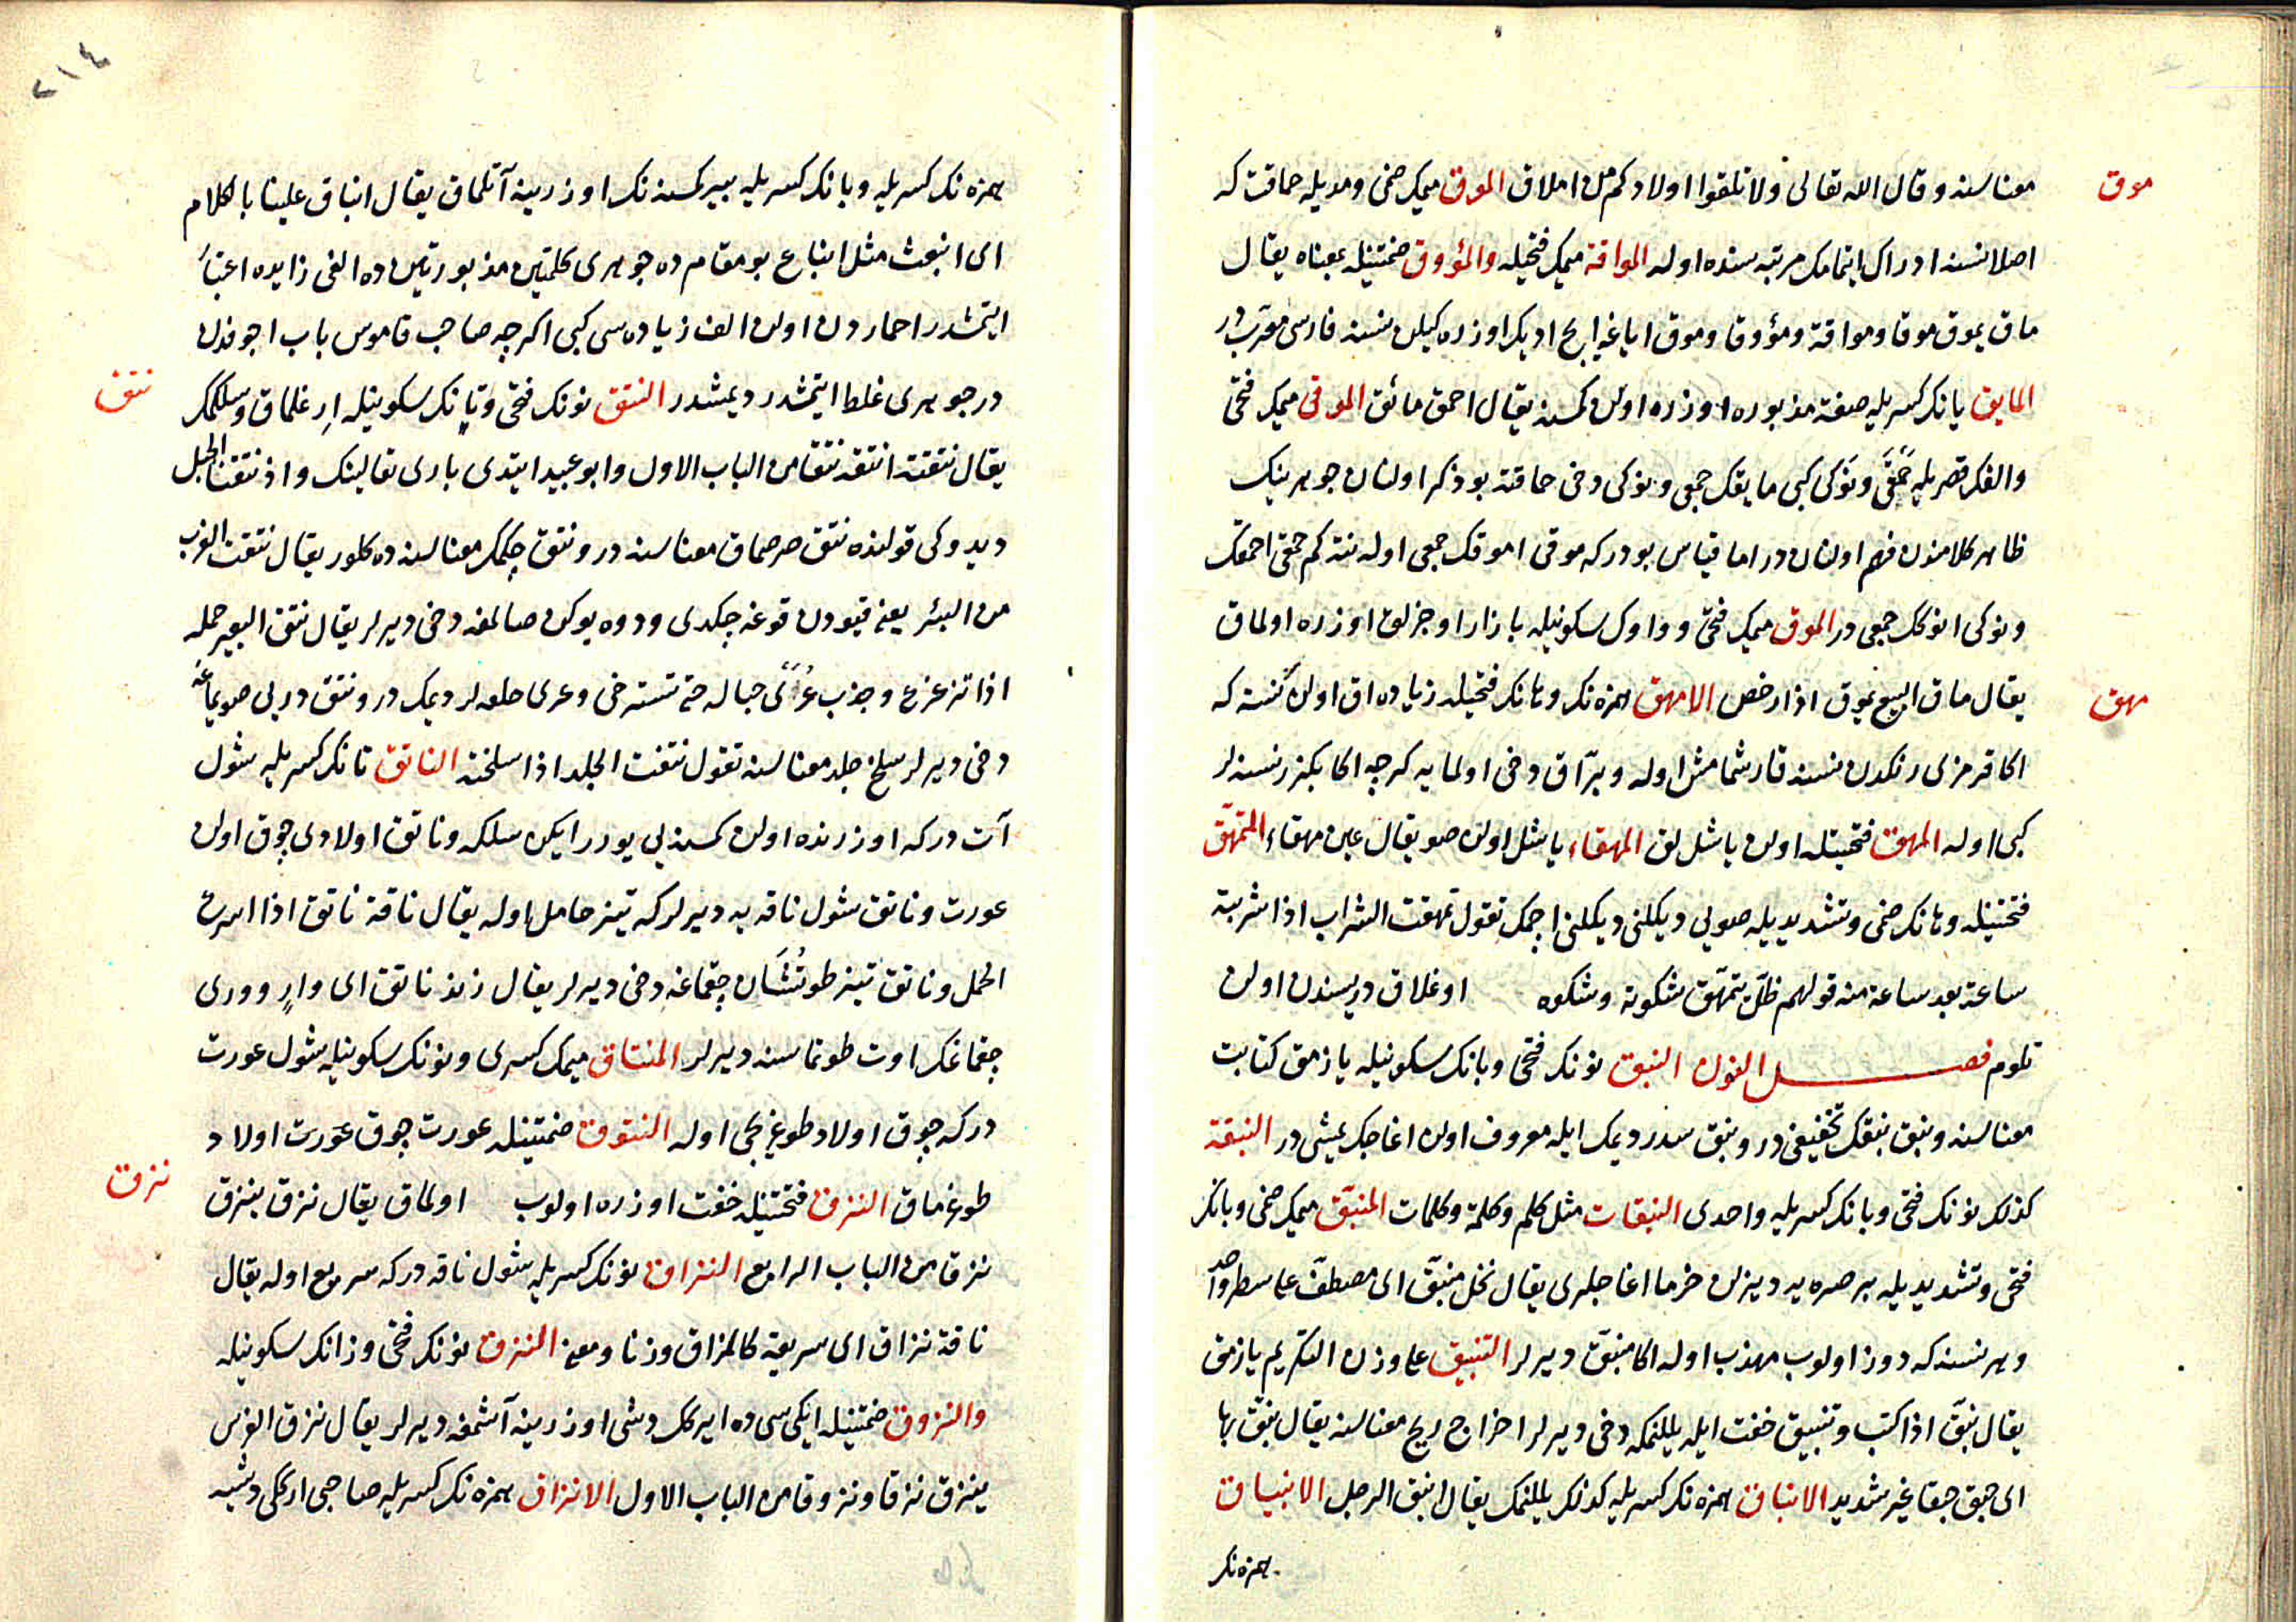 موق
معناسنه و قال الله تعالى ولا تلقوا اولادكم من املاق الموق ميمك ضمى و مديله حماقت كه
اصلا نسنه ادراك ايتمامك مرتبه سنده اوله المواقة ميمك فتحيله والمؤوق ضمتينله بمعناه يقال
ماق يموق موقا ومواقة ومؤوقا وموق اياغه ايچ اديك اوزره كيلن نسنه فارسى معرّب در
المايق يانك كسريله صفة مذبوره اوزره اولن كمسنه يقال احمق مائق الموقى ميمك فتحى
والفك قصريله حمقى ونوكى كبى مايقك جمعى و نوكى دخى حماقته بو ذكر اولنان جوهرينك
ظاهر كلامندن فهم اولنان در اما قياس بودركه موقى اموقك جمعى اوله نته كم حمقى احمقك
ونوكى انوكك جمعى در الموق ميمك فتحى و واوك سكونيله بازار اوجزلق اوزره اولماق
يقال ماق البيع يموق اذا رخص الامهق همزه نك و هانك فتحيله زياده اق اولن نسنه كه
مهق
اكا قرمزى رنكدن نسنه قارشمامش اوله و برّاق دخى اولمايه كرجه اكا بكزر نسنه لر
كبى اوله المهق فتحتينله اولن ياشل لق المهقاء ياشل اولن صو يقال عين مهقاء التمهّق
فتحتينله و هانك ضمى و تشديديله صويى ديكلنى ديكلنى اچمك تقول تمهقت الشراب اذا شربته
ساعة بعد ساعة منه قولهم ظلّ يتمهّق شكوته و شكوه اوغلاق دريسندن اولن
تلوم فصل النون النبق نونك فتحى و بانك سكونيله يازمق كتابت
معناسنه و نبق نبقك تخفيفى در و نبق سدر ديمك ايله معروف اولن اغاجك يمشى در النبقة
كذلك نونك فتحى و بانك كسريله واحدى النبقات مثل كلم وكلمة وكلمات المنبّق ميمك ضمى و بانك
فتحى و تشديديله بر صره يه ديزلن خرما اغاجلرى يقال نخل منبّق اى مصطفّ على سطر واحد
و هر نسنه كه دوز اولوب مهذب اوله اكا منبّق ديرلر التنبيق على وزن التكريم يازمق
يقال نبّق اذا كتب و تنبيق خفت ايله يللنمكه دخى ديرلر اخراج ريح معناسنه يقال نبّق بها
اى حبق حبقا غير شديد الانباق همزه نك كسريله كذلك يللنمك يقال انبق الرجل الانبياق
همزه نك
٢١٤
همزه نك كسريله و بانك كسريله بير كمسنه نك اوزرينه آتلماق يقال انباق علينا بالكلام
اى انبعث مثل انباع بو مقام ده جوهرى كلمتين مذبورتين ده الفى زايده اعتبار
ايتمشدر احمار دن اولن الف زياده سى كبى اكرچه صاحب قاموس باب اجوفدن
در جوهرى غلط ايتمشدر ديمشدر النتق نونك فتحى و تانك سكونيله ارغلماق و سلكمك
نتق
يقال نتقته انتقه نتقا من الباب الاول و ابو عبيد ايتدى بارى تعالينك و اذ نتقنا الجبل
ديدوكى قولنده نتق صرصماق معناسنه در و نتق چكمك معناسنه ده كلور يقال نتقت الغرب
من البئر يعنى قيودن قوغه چكدى و دوه يوكن صالمغه دخى ديرلر يقال نتق البعير حمله
اذا تزعزع و جذب عرى حباله حتى تسترخى و عرى حلقه لر ديمك در و نتق دربى صويماغه
دخى ديرلر سلخ جلد معناسنه تقول نتقت الجلد اذا سلخته الناتق تانك كسريله شول
آت دركه اوزرنده اولن كمسنه يى يورر ايكن سلكه و ناتق اولادى چوق اولن
عورت و ناتق شول ناقه يه ديرلر كه تيز حامل اوله يقال ناقة ناتق اذا اسرعت
الحمل و ناتق تيز طوتشان چقماغه دخى ديرلر يقال زند ناتق اى وارٍ و ورى
چقماغك اوت طوتماسنه ديرلر المنتاق ميمك كسرى و نونك سكونيله شول عورت
دركه چوق اولاد طوغريجى اوله النتوق ضمتينله عورت چوق عورت اولاد
طوغرماق النزق فتحتينله خفت اوزره اولوب اولماق يقال نزق ينزق
نزق
نزقا من الباب الرابع النزاق نونك كسريله شول ناقه دركه سريع اوله يقال
ناقة نزاق اى سريعة كالمزاق وزنا و معنى النزق نونك فتحى و زانك سكونيله
والنزوق ضمتينله ايكى سى ده ايركك دشى اوزرينه آشمغه ديرلر يقال نزق الفرس
ينزق نزقا و نزوقا من الباب الاول الانزاق همزه نك كسريله صاحبى اركى دشيه